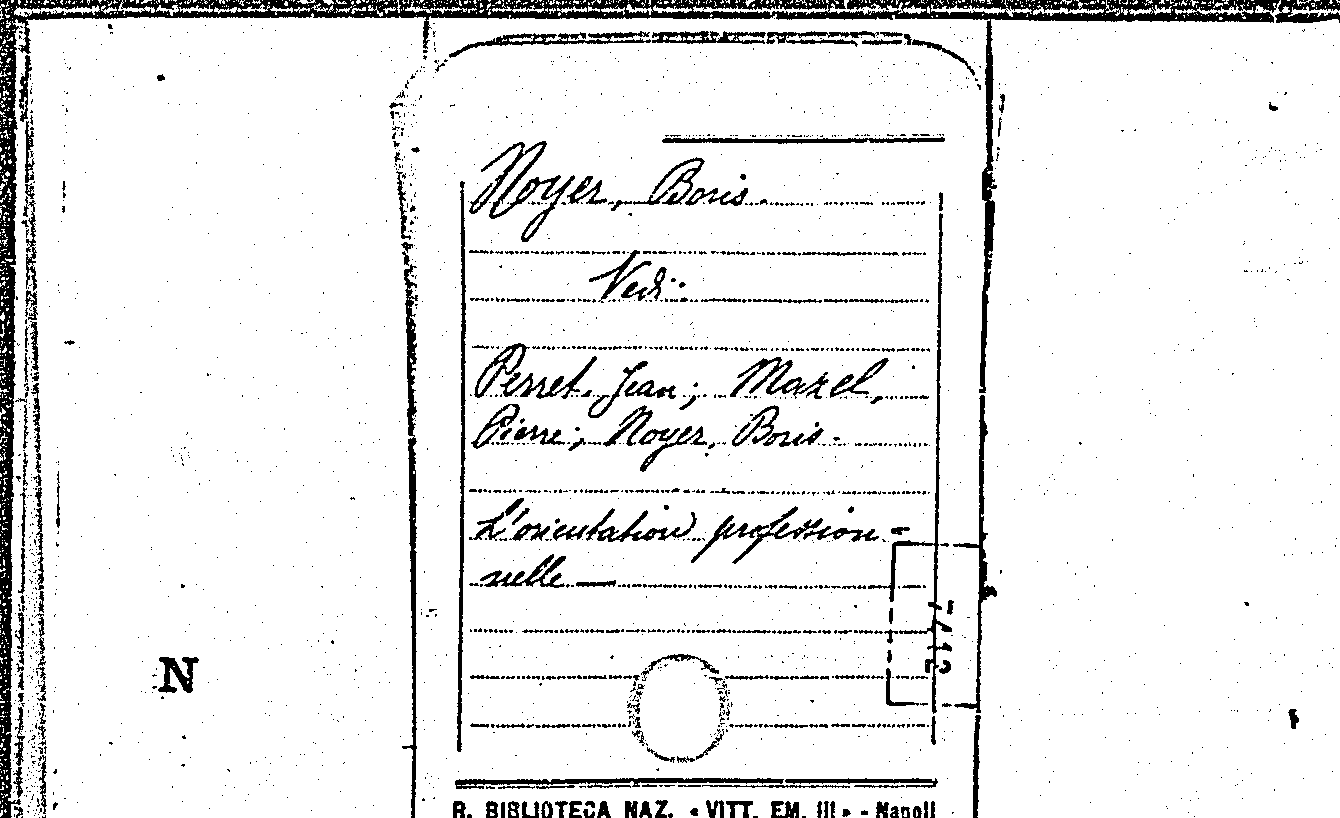 Noyer, Boris.
Vedi:
Perret, Jean; Mazel,
Pierre; Noyer, Boris.
L'orientation profession-
nelle —
N
R. BIBLIOTECA NAZ. « VITT. EM. III » - Napoli